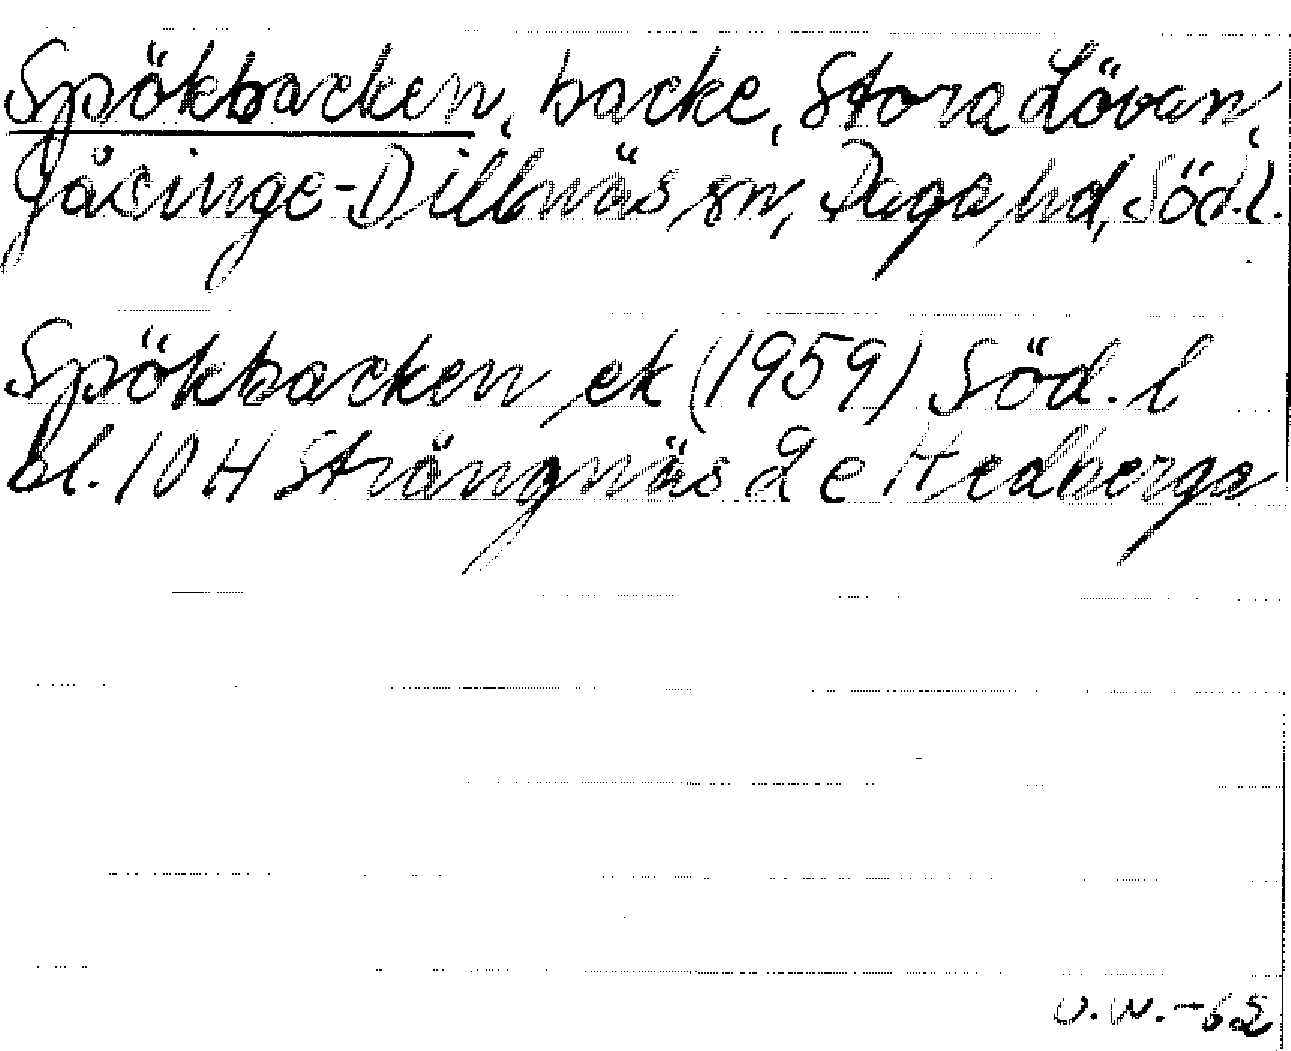 Spökbacken, backe, Stora Lövan,
Gåsinge-Dillnäs sn, Daga hd, Söd.l.
Spökbacken ek (1959) Söd. l
bl. 10 H Strängnäs 2 e Hedberga
U.W.-62